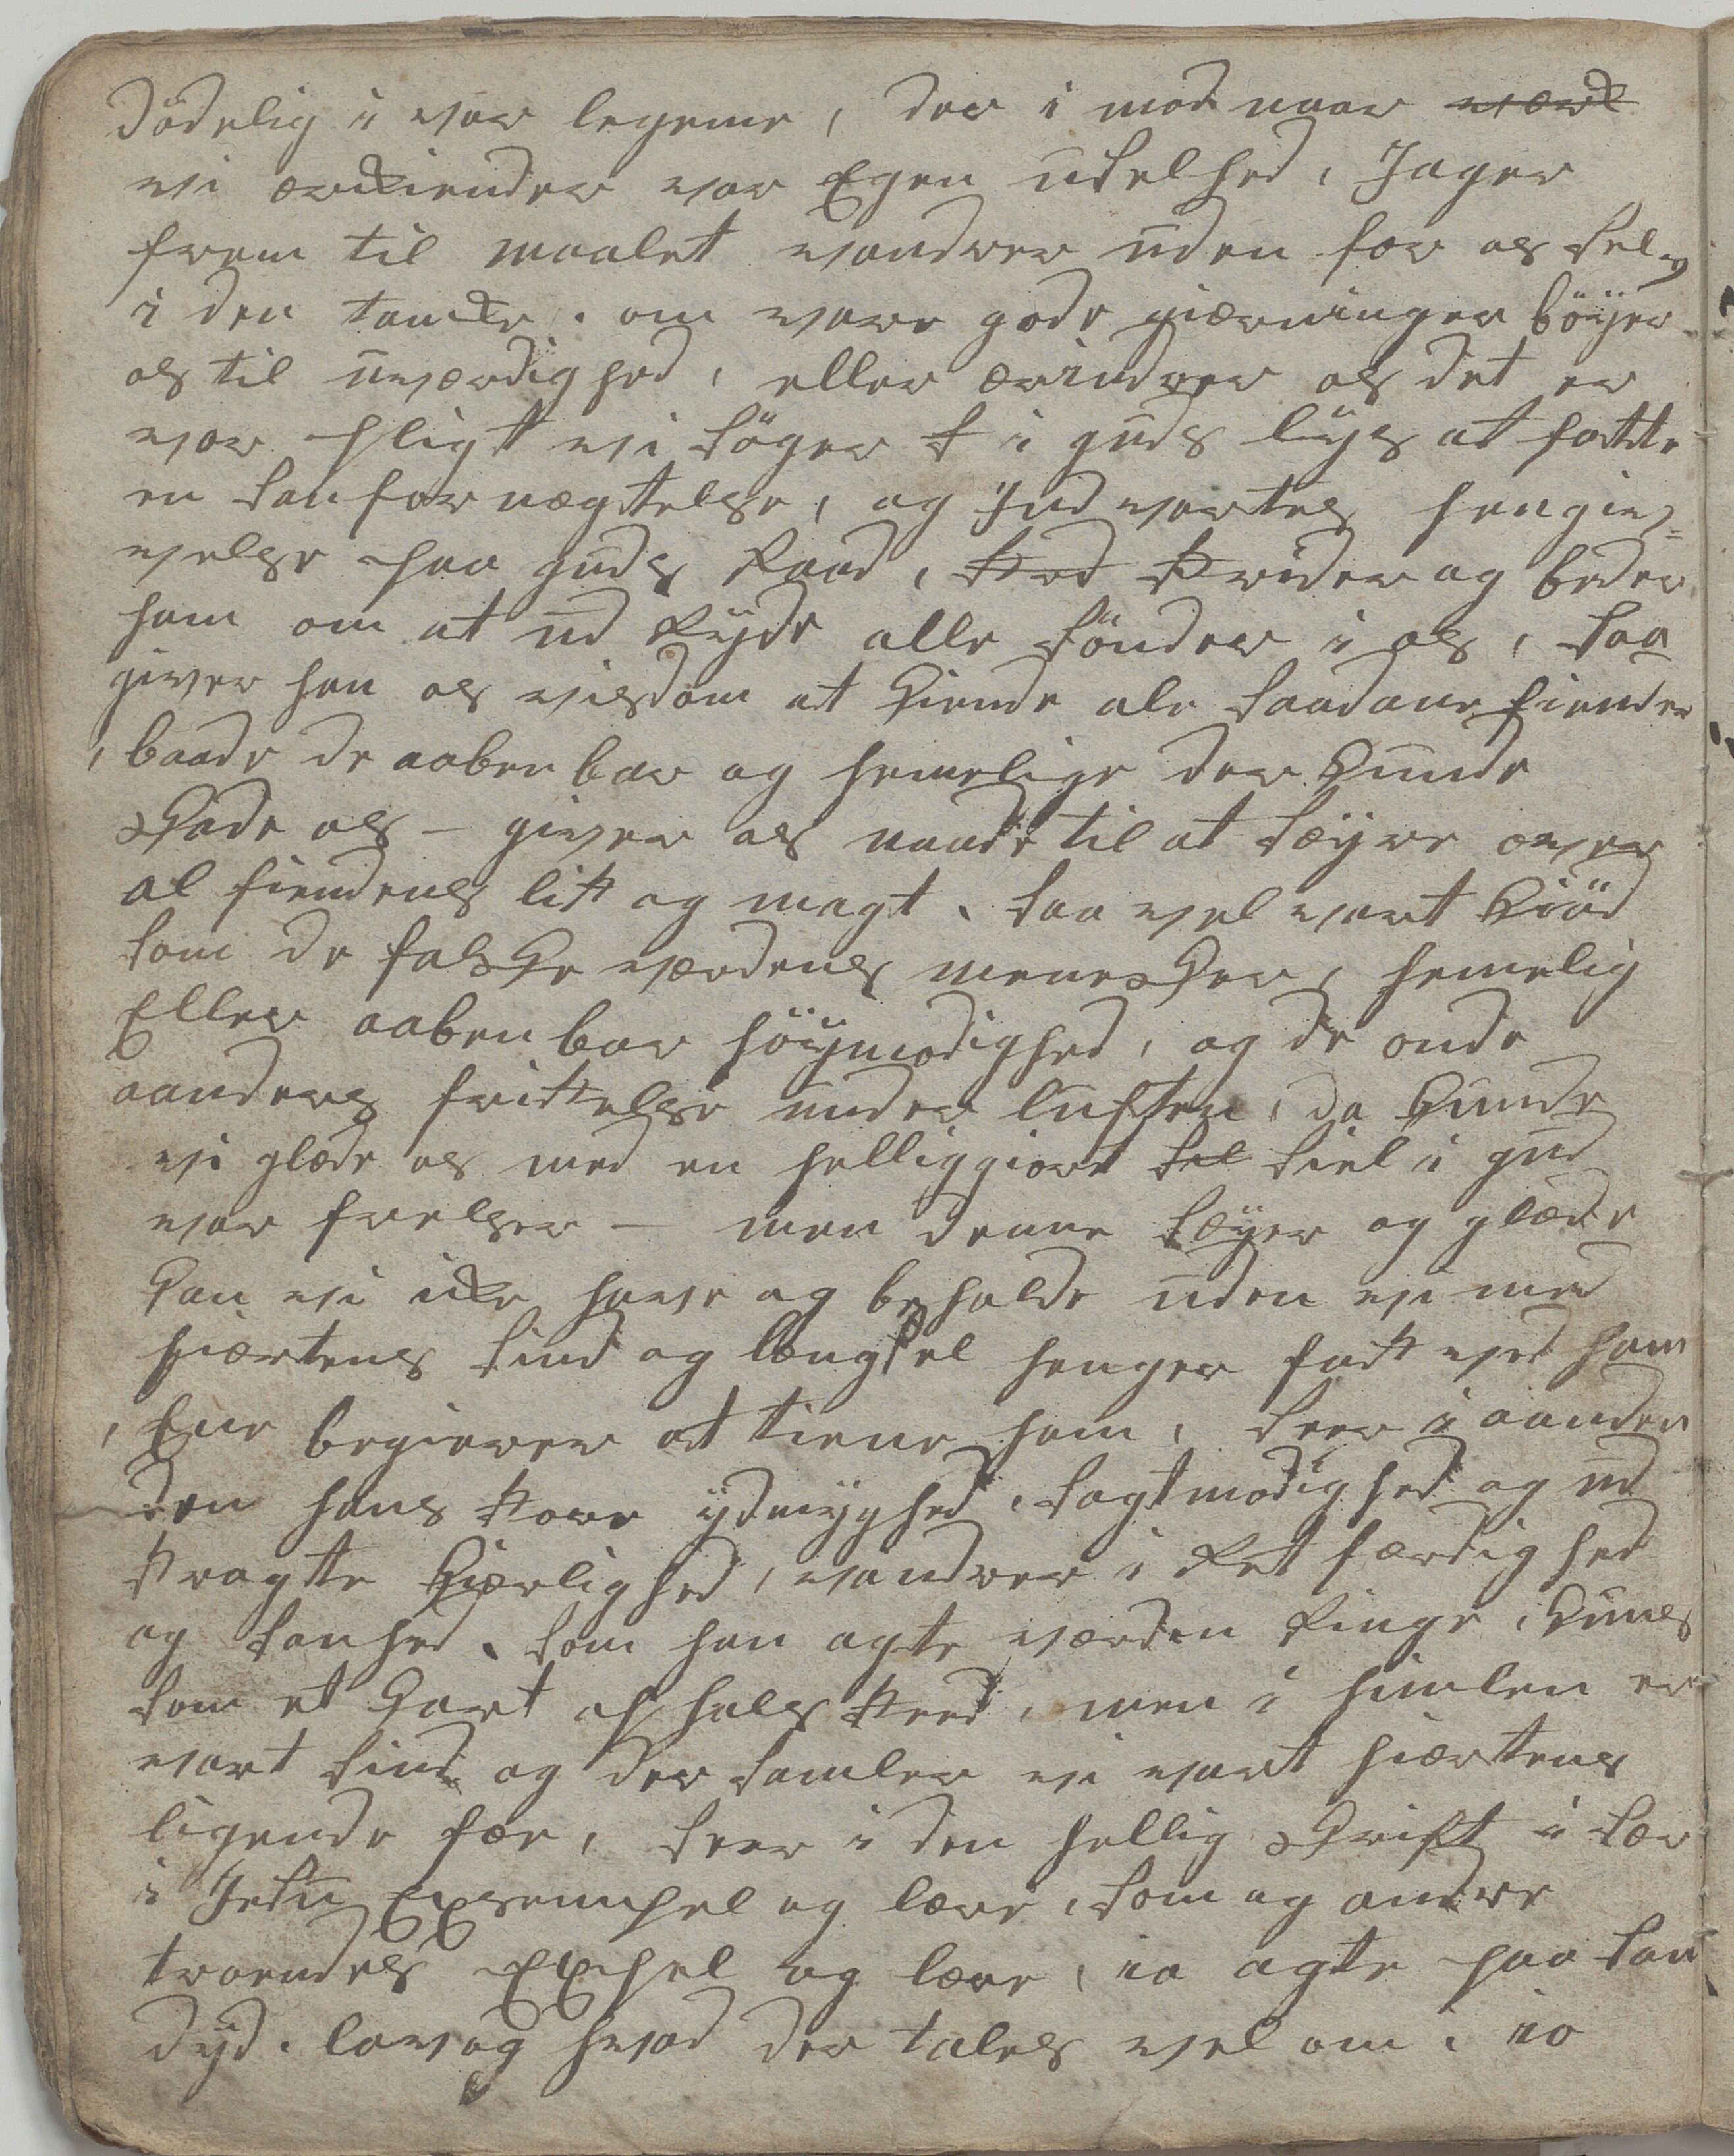 dödelig i vor legeme, der i mod naar vort
vi erkiender vor Egen uselhed, Jager
frem til maalet vandrer uden for os selv
i den tancke, om vore gode gierninger böyer
os til uverdighed, eller erindrer os det er
vor pligt vi söger s i guds lÿs at fatte
en sanfornegtelse, og Indvortes hengiv=
velse paa guds Raad, sted strider og beder
ham om at ud Rÿde alle sönder i os, saa
giver han os visdom at kiende ale saadane fiender
, baade de aabenbar og hemelige der kunde
skade os - giver os naade til at seÿre over
al fiendens list og magt, saa vel vort kiöd
som de falske verdens menesker, hemelig
Eller aabenbar höÿmodighed, og de onde
aanders fristelse under luften, da kunde
vi glæde os med en helliggiort sel siel i gud
vor frelser - men denne seÿer og glæde
kan vi icke have og beholde uden vi med
hiertens sind og lengsel henger fast ved ham
, Ene begierer at tiene ham, seer i aanden
den hans store ydmyghed, sagtmodighed og ud
stragte kierlighed, vandrer i Retferdighed
og sanhed, som han agte verden Ringe, kuns
som et kort opholssted, men i himlen er
vort sind og der samler vi vort hiertens
ligende fæe, seer i den hellig skrift i sær
i Jesu Exsempel og lære, som og andre
troendes Expel og lære, ia agte paa san
dÿd, lov og hvad der tales vel om, io